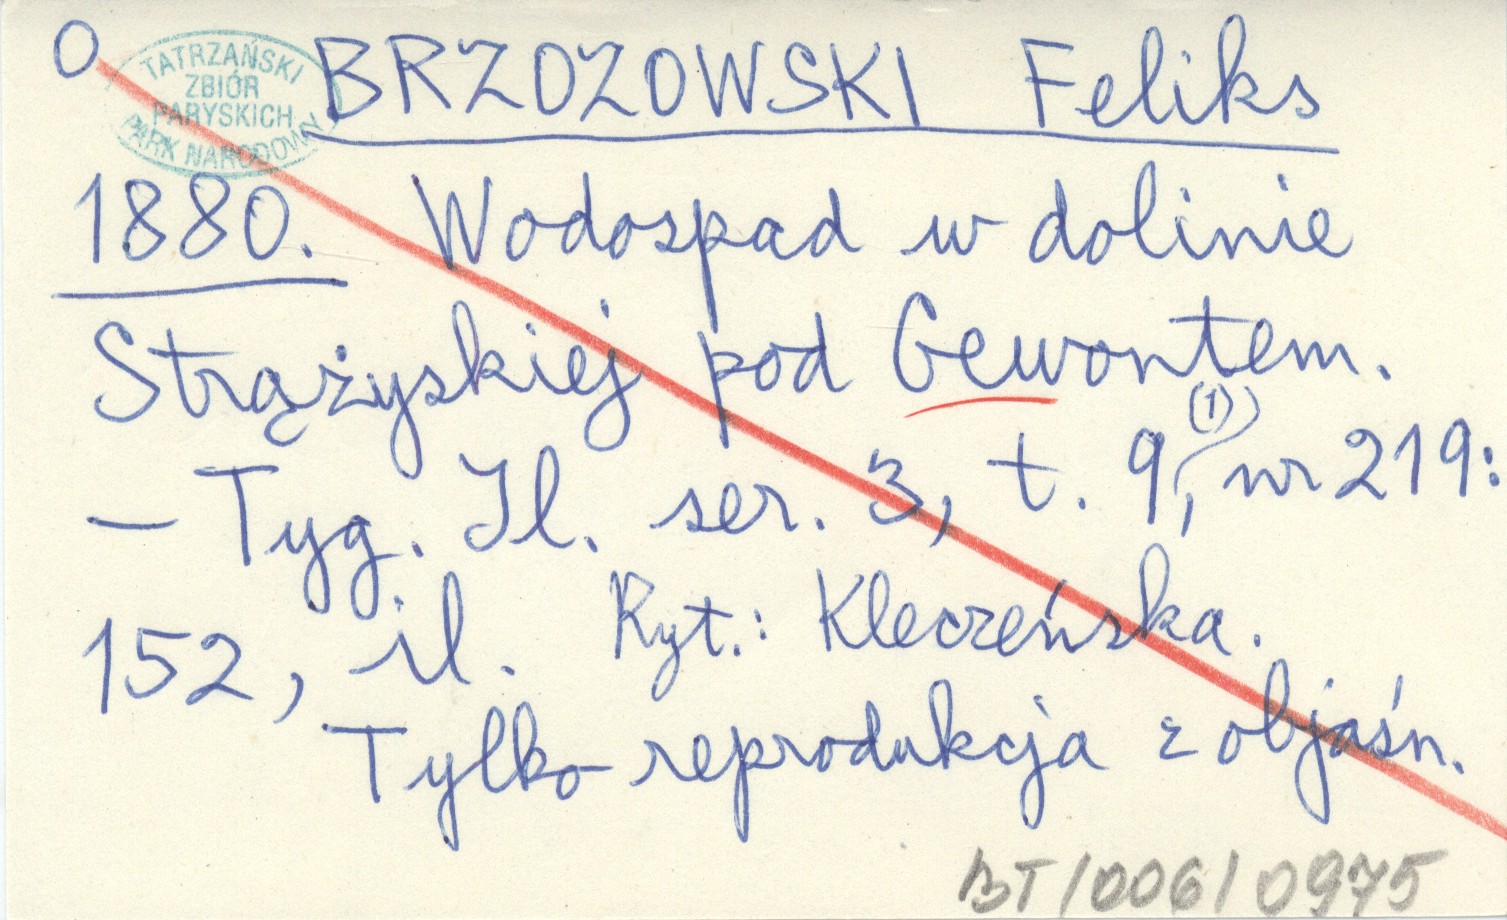 O
TATRZAŃSKI
ZBIÓR
PARYSKICH
PARK NARODOWY
BRZOZOWSKI Feliks
1880. Wodospad w dolinie
Strążyskiej pod Gewontem.
– Tyg. Il. ser. 3, t. 9,(1) nr 219:
152, il. Ryt.: Kleczeńska.
Tylko reprodukcja z objaśn.
BT/006/0975